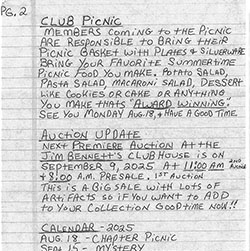 PG. 2
CLUB PICNIC
MEMBERS COMING TO THE PICNIC
ARE RESPONSIBLE TO BRING THEIR
PICNIC BASKET WITH PLATES & SILVERWARE
BRING YOUR FAVORITE SUMMERTIME
PICNIC FOOD YOU MAKE. POTATO SALAD,
PASTA SALAD, MACARONI SALAD, DESSERT
LIKE COOKIES OR CAKE OR ANYTHING
YOU MAKE THATS "AWARD WINNING".
SEE YOU MONDAY AUG, 18, & HAVE A GOOD TIME
AUCTION UPDATE
NEXT PREMIERE AUCTION AT THE
JIM BENNETT'S CLUB HOUSE IS ON
SEPTEMBER 9, 2025 AT 11:00 AM 2ND
& 8:00 A.M. PRESALE, 1ST AUCTION
THIS IS A BIG SALE WITH LOTS OF
ARTIFACTS SO IF YOU WANT TO ADD
TO YOUR COLLECTION GOOD TIME NOW!!
CALENDAR - 2025
AUG. 18 - CHAPTER PICNIC
SEPT. 15 - MYSTERY